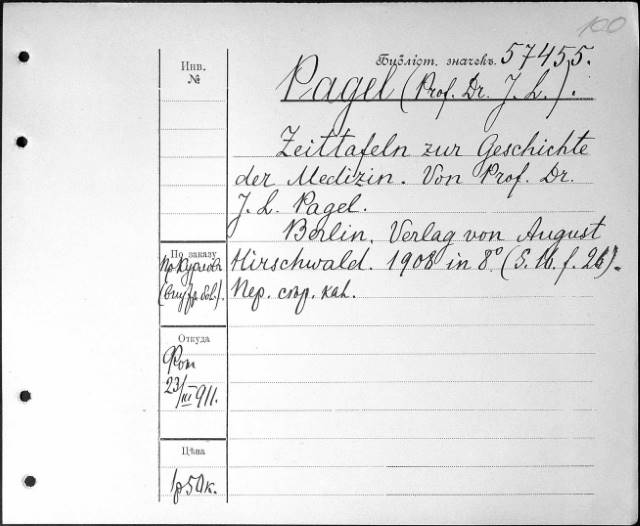 100
Инв.
№
Библіот. значекъ. 57455.
Pagel (Prof. Dr. J. L.).
Zeittafeln zur Geschichte
der Medizin. Von Prof. Dr.
J. L. Pagel.
Berlin. Verlag von August
Hirschwald. 1908 in 8° (S. f. 26).
Пер.
По заказу
Откуда
23/III 911.
Цѣна
1р 50к.